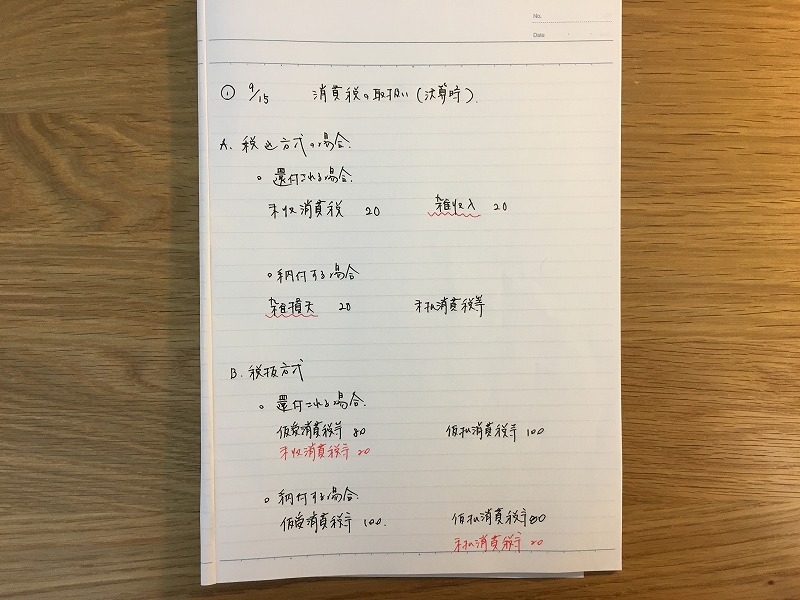 No.
Date
① 9/15 消費税の取扱い(決算時).
A. 税込方式の場合.
。還付される場合.
未収消費税 20 雑収入 20
。納付する場合
雑損失 20 未払消費税等
B. 税抜方式
。還付される場合.
仮受消費税等 80 仮払消費税等 100
未収消費税等 20
。納付する場合.
仮受消費税等 100. 仮払消費税等 80
未払消費税等 20